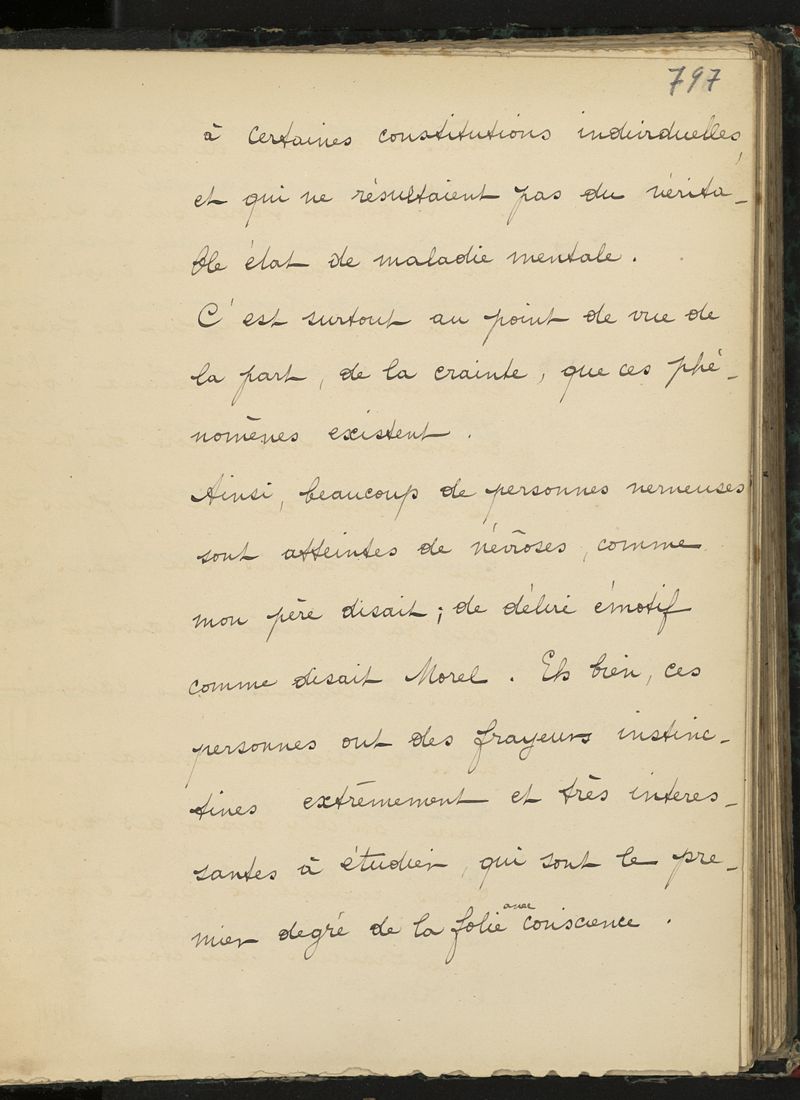 797
à certaines constitutions individuelles,
et qui ne résultaient pas du vérita-
ble état de maladie mentale.
C'est surtout au point de vue de
la part, de la crainte, que ces phé-
nomènes existent.
Ainsi, beaucoup de personnes nerveuses
sont atteintes de névroses, comme
mon père disait; de délire émotif
comme disait Morel. Eh bien, ces
personnes ont des frayeurs instinc-
tives extrêmement et très interes-
santes à étudier, qui sont le pre-
mier degré de la folie avec conscience.